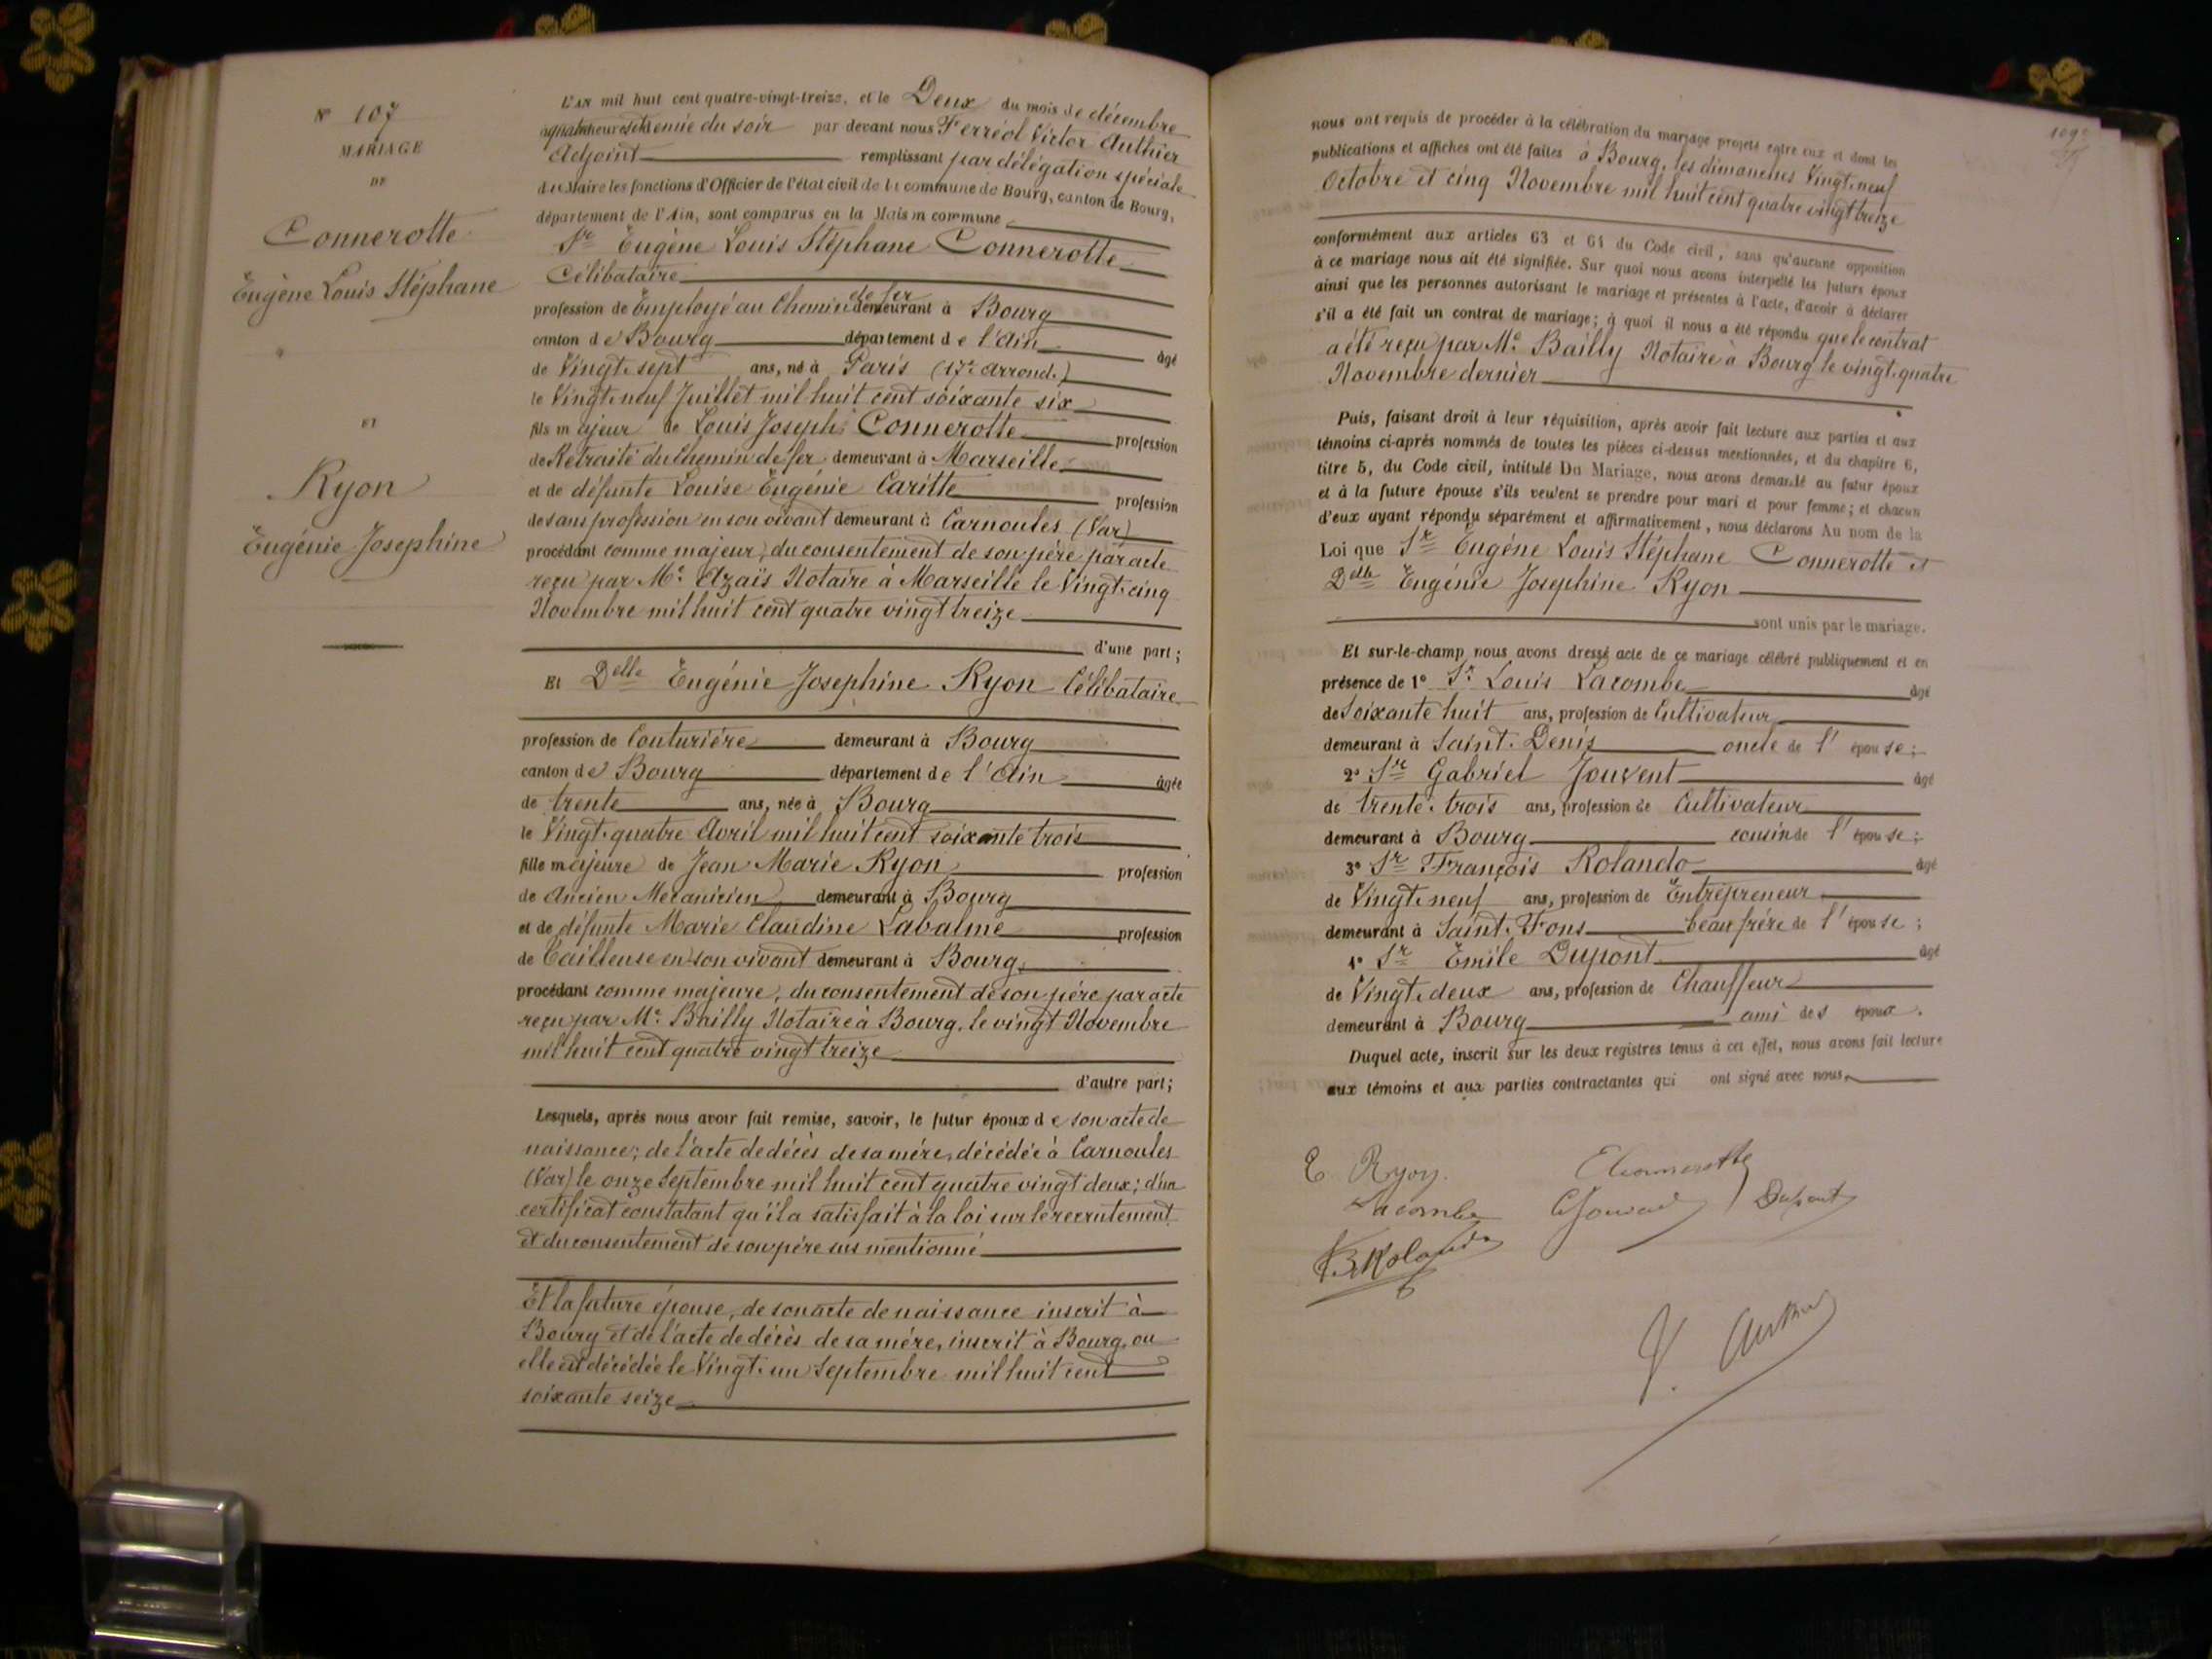 N° 107
MARIAGE
DE
Connerotte
Eugène Louis Stéphane
ET
Ryon
Eugénie Josephine
L'AN mil huit cent quatre-vingt-treize, et le Deux du mois de décembre
à quatre heures et demie du soir par devant nous Ferréol Victor Authier
Adjoint remplissant par délégation spéciale
du Maire les fonctions d'Officier de l'état civil de la commune de Bourg, canton de Bourg,
département de l'Ain, sont comparus en la Maison commune
Sr Eugène Louis Stéphane Connerotte
Célibataire
profession de Employé au Chemin de fer demeurant à Bourg
canton de Bourg département de l'Ain âgé
de Vingt-sept ans, né à Paris (17e arrond.)
le Vingt-neuf Juillet mil huit cent soixante six
fils majeur de Louis Joseph Connerotte profession
de Retraité du Chemin de fer demeurant à Marseille
et de défunte Louise Eugénie Caritte profession
de sans profession en son vivant demeurant à Carnoules (Var)
procédant comme majeur, du consentement de son père par acte
reçu par Me Azaïs Notaire à Marseille le Vingt-cinq
Novembre mil huit cent quatre vingt treize
d'une part ;
Et Delle Eugénie Josephine Ryon Célibataire
profession de Couturière demeurant à Bourg
canton de Bourg département de l'Ain âgée
de trente ans, née à Bourg
le Vingt-quatre Avril mil huit cent soixante trois
fille majeure de Jean Marie Ryon profession
de Ancien Mécanicien demeurant à Bourg
et de défunte Marie Claudine Labalme profession
de Tailleuse en son vivant demeurant à Bourg
procédant comme majeure, du consentement de son père par acte
reçu par Me Bailly Notaire à Bourg, le vingt Novembre
mil huit cent quatre vingt treize
d'autre part ;
Lesquels, après nous avoir fait remise, savoir, le futur époux de son acte de
naissance ; de l'acte de décès de sa mère, décédée à Carnoules
(Var) le onze Septembre mil huit cent quatre vingt deux ; d'un
certificat constatant qu'il a satisfait à la loi sur le recrutement
et du consentement de son père sus mentionné
Et la future épouse, de son acte de naissance inscrit à
Bourg et de l'acte de décès de sa mère, inscrit à Bourg, ou
elle est décédée le Vingt-un Septembre mil huit cent
soixante seize
nous ont requis de procéder à la célébration du mariage projeté entre eux et dont les
publications et affiches ont été faites à Bourg, les dimanches Vingt-neuf
Octobre et cinq Novembre mil huit cent quatre vingt treize
conformément aux articles 63 et 64 du Code civil, sans qu'aucune opposition
à ce mariage nous ait été signifiée. Sur quoi nous avons interpellé les futurs époux
ainsi que les personnes autorisant le mariage et présentes à l'acte, d'avoir à déclarer
s'il a été fait un contrat de mariage ; à quoi il nous a été répondu que le contrat
a été reçu par Me Bailly Notaire à Bourg le vingt-quatre
Novembre dernier
Puis, faisant droit à leur réquisition, après avoir fait lecture aux parties et aux
témoins ci-après nommés de toutes les pièces ci-dessus mentionnées, et du chapitre 6,
titre 5, du Code civil, intitulé Du Mariage, nous avons demandé au futur époux
et à la future épouse s'ils veulent se prendre pour mari et pour femme ; et chacun
d'eux ayant répondu séparément et affirmativement, nous déclarons Au nom de la
Loi que Sr Eugène Louis Stéphane Connerotte et
Delle Eugénie Josephine Ryon
sont unis par le mariage.
Et sur-le-champ nous avons dressé acte de ce mariage célébré publiquement et en
présence de 1° Sr Louis Lacombe âgé
de Soixante huit ans, profession de Cultivateur
demeurant à Saint-Denis oncle de l'épouse ;
2° Sr Gabriel Jouvent âgé
de trente-trois ans, profession de Cultivateur
demeurant à Bourg cousin de l'épouse ;
3° Sr François Rolando âgé
de Vingt-neuf ans, profession de Entrepreneur
demeurant à Saint-Fons beau frère de l'épouse ;
4° Sr Emile Dupont âgé
de Vingt-deux ans, profession de Chauffeur
demeurant à Bourg ami des époux.
Duquel acte, inscrit sur les deux registres tenus à cet effet, nous avons fait lecture
aux témoins et aux parties contractantes qui ont signé avec nous.
E. Ryon. EConnerotte
Lacombe Dupont
Rolando
V. Authier